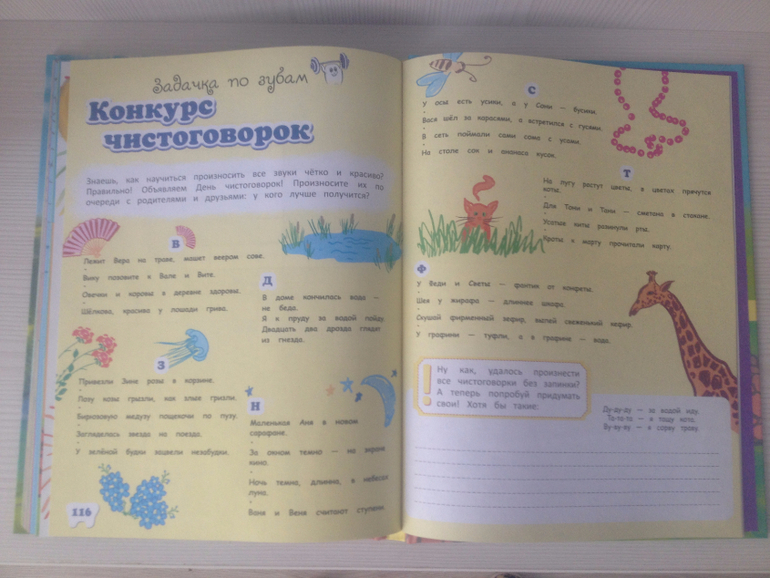 Задачка по зубам
Конкурс
чистоговорок
Знаешь, как научиться произносить все звуки чётко и красиво?
Правильно! Объявляем День чистоговорок! Произносите их по
очереди с родителями и друзьями: у кого лучше получится?
В
Лежит Вера на траве, машет веером сове.
Вику позовите к Вале и Вите.
Овечки и коровы в деревне здоровы.
Шёлкова, красива у лошади грива.
Д
В доме кончилась вода —
не беда.
Я к пруду за водой пойду.
Двадцать два дрозда глядят
из гнезда.
З
Привезли Зине розы в корзине.
Лозу козы грызли, как злые грызли.
Бирюзовую медузу пощекочи по пузу.
Загляделась звезда на поезда.
У зелёной будки зацвели незабудки.
Н
Маленькая Аня в новом
сарафане.
За окном темно — на экране
кино.
Ночь темна, длинна, в небесах
луна.
Ваня и Веня считают ступени.
116
С
У осы есть усики, а у Сони — бусики.
Вася шёл за карасями, а встретился с гусями.
В сеть поймали сами сома с усами.
На столе сок и ананаса кусок.
Т
На лугу растут цветы, в цветах прячутся
коты.
Для Тани и Тани — сметана в стакане.
Усатые киты разинули рты.
Кроты к марту прочитали карту.
Ф
У Феди и Светы — фантик от конфеты.
Шея у жирафа — длиннее шкафа.
Скушай фирменный зефир, выпей свеженький кефир.
У графини — туфли, а в графине — вода.
! Ну как, удалось произнести
все чистоговорки без запинки?
А теперь попробуй придумать
свои! Хотя бы такие:
Ду-ду-ду — за водой иду.
Та-та-та — я тащу кота.
Ву-ву-ву — я сорву траву.